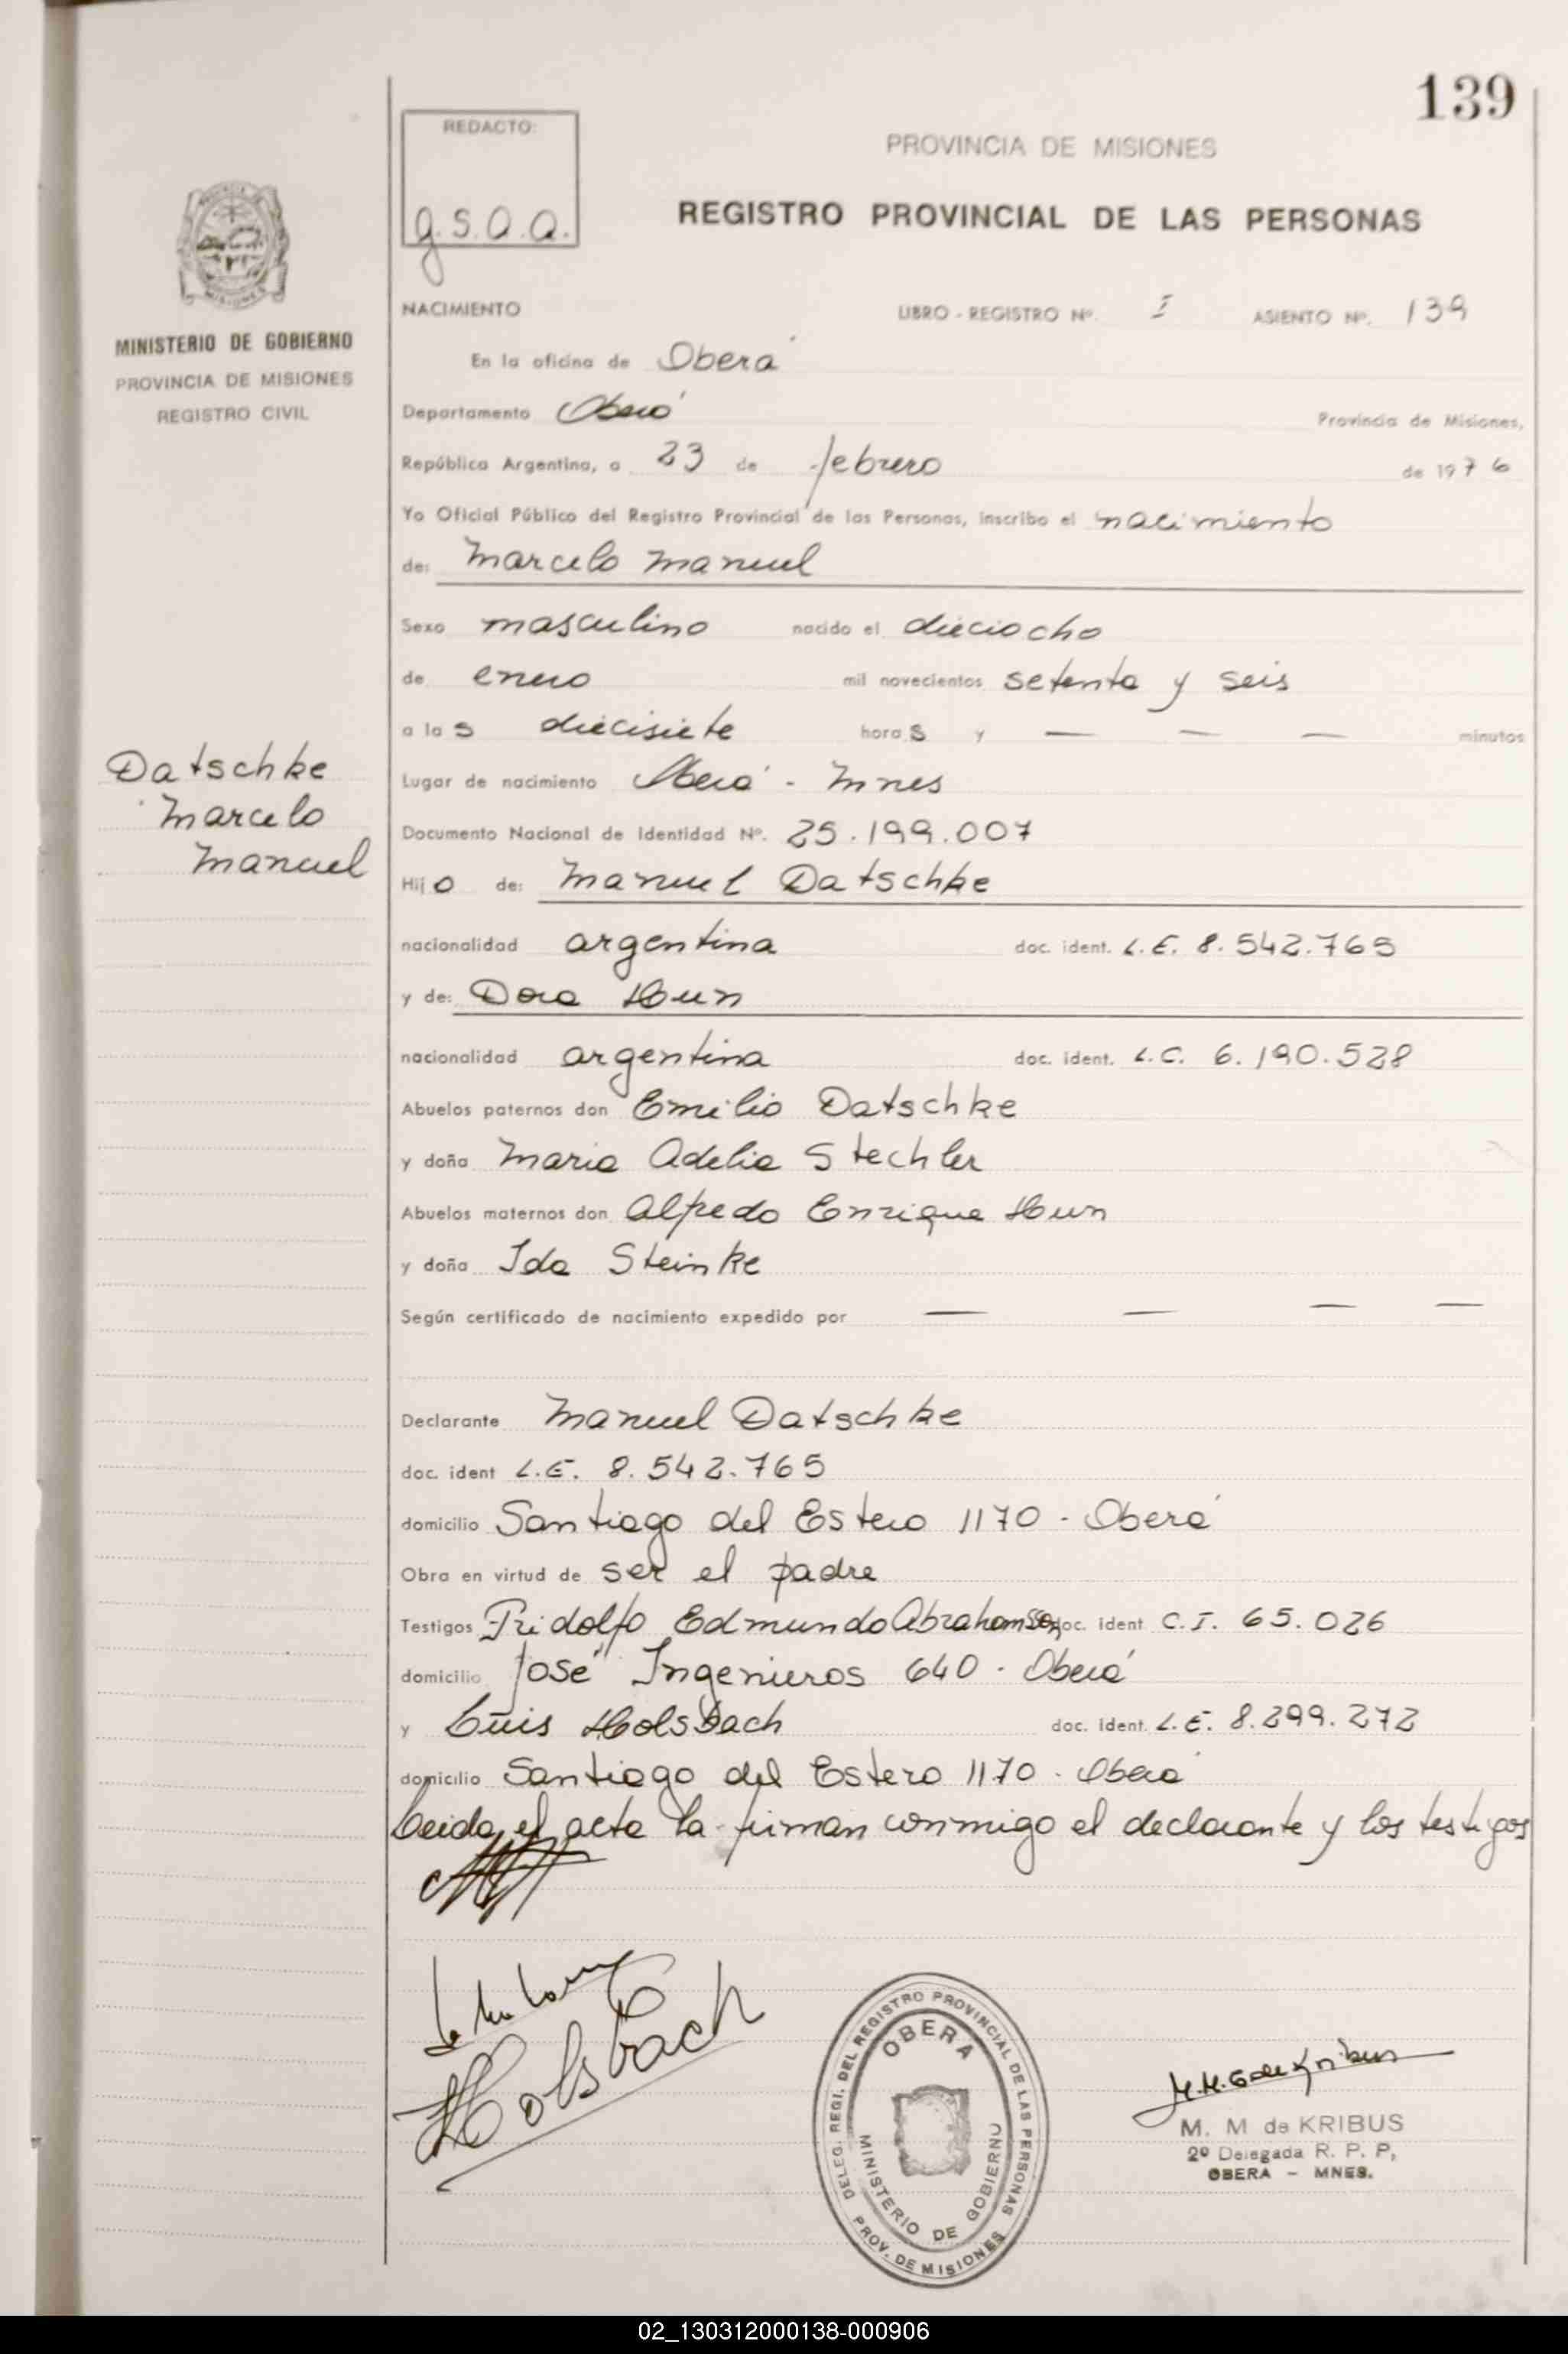 139
REDACTO:
g.S.a.a.
PROVINCIA DE MISIONES
REGISTRO PROVINCIAL DE LAS PERSONAS
MINISTERIO DE GOBIERNO
PROVINCIA DE MISIONES
REGISTRO CIVIL
NACIMIENTO LIBRO - REGISTRO Nº. I ASIENTO Nº. 139
En la oficina de Oberá
Departamento Oberá Provincia de Misiones,
República Argentina, a 23 de febrero de 1976
Yo Oficial Público del Registro Provincial de las Personas, inscribo el nacimiento
de: Marcelo Manuel
Sexo masculino nacido el dieciocho
de enero mil novecientos setenta y seis
a las diecisiete horas y — — — minutos
Datschke
Marcelo
Manuel
Lugar de nacimiento Oberá - Mnes
Documento Nacional de Identidad Nº. 25.199.007
Hijo de: Manuel Datschke
nacionalidad argentina doc. ident. L.E. 8.542.765
y de: Dora Hun
nacionalidad argentina doc. ident. L.C. 6.190.528
Abuelos paternos don Emilio Datschke
y doña Maria Adelia Stechler
Abuelos maternos don Alfredo Enrique Hun
y doña Ida Steinke
Según certificado de nacimiento expedido por — — — —
Declarante Manuel Datschke
doc. ident L.E. 8.542.765
domicilio Santiago del Estero 1170 - Oberá
Obra en virtud de ser el padre
Testigos Fridolfo Edmundo Abrahamsson doc. ident C.I. 65.026
domicilio José Ingenieros 640 - Oberá
y Luis Holsbach doc. ident. L.E. 8.299.272
domicilio Santiago del Estero 1170 - Oberá
Leida el acta la firman conmigo el declarante y los testigos
Holsbach
DELEG. REGI. DEL REGISTRO PROVINCIAL DE LAS PERSONAS
OBERA
MINISTERIO DE GOBIERNO
PROV. DE MISIONES
M. M. de Kribus
M. M de KRIBUS
2º Delegada R. P. P,
OBERA - MNES.
02_130312000138-000906